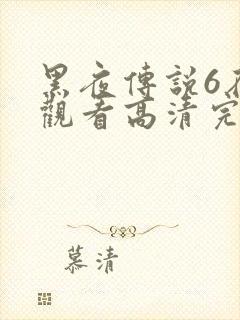 黑夜傳説6在
觀看高清完
慕清